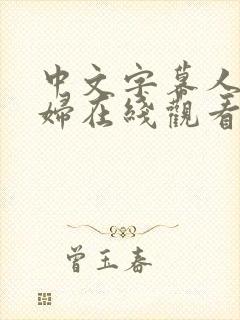 中文字幕人
婦在綫觀看
曾玉春